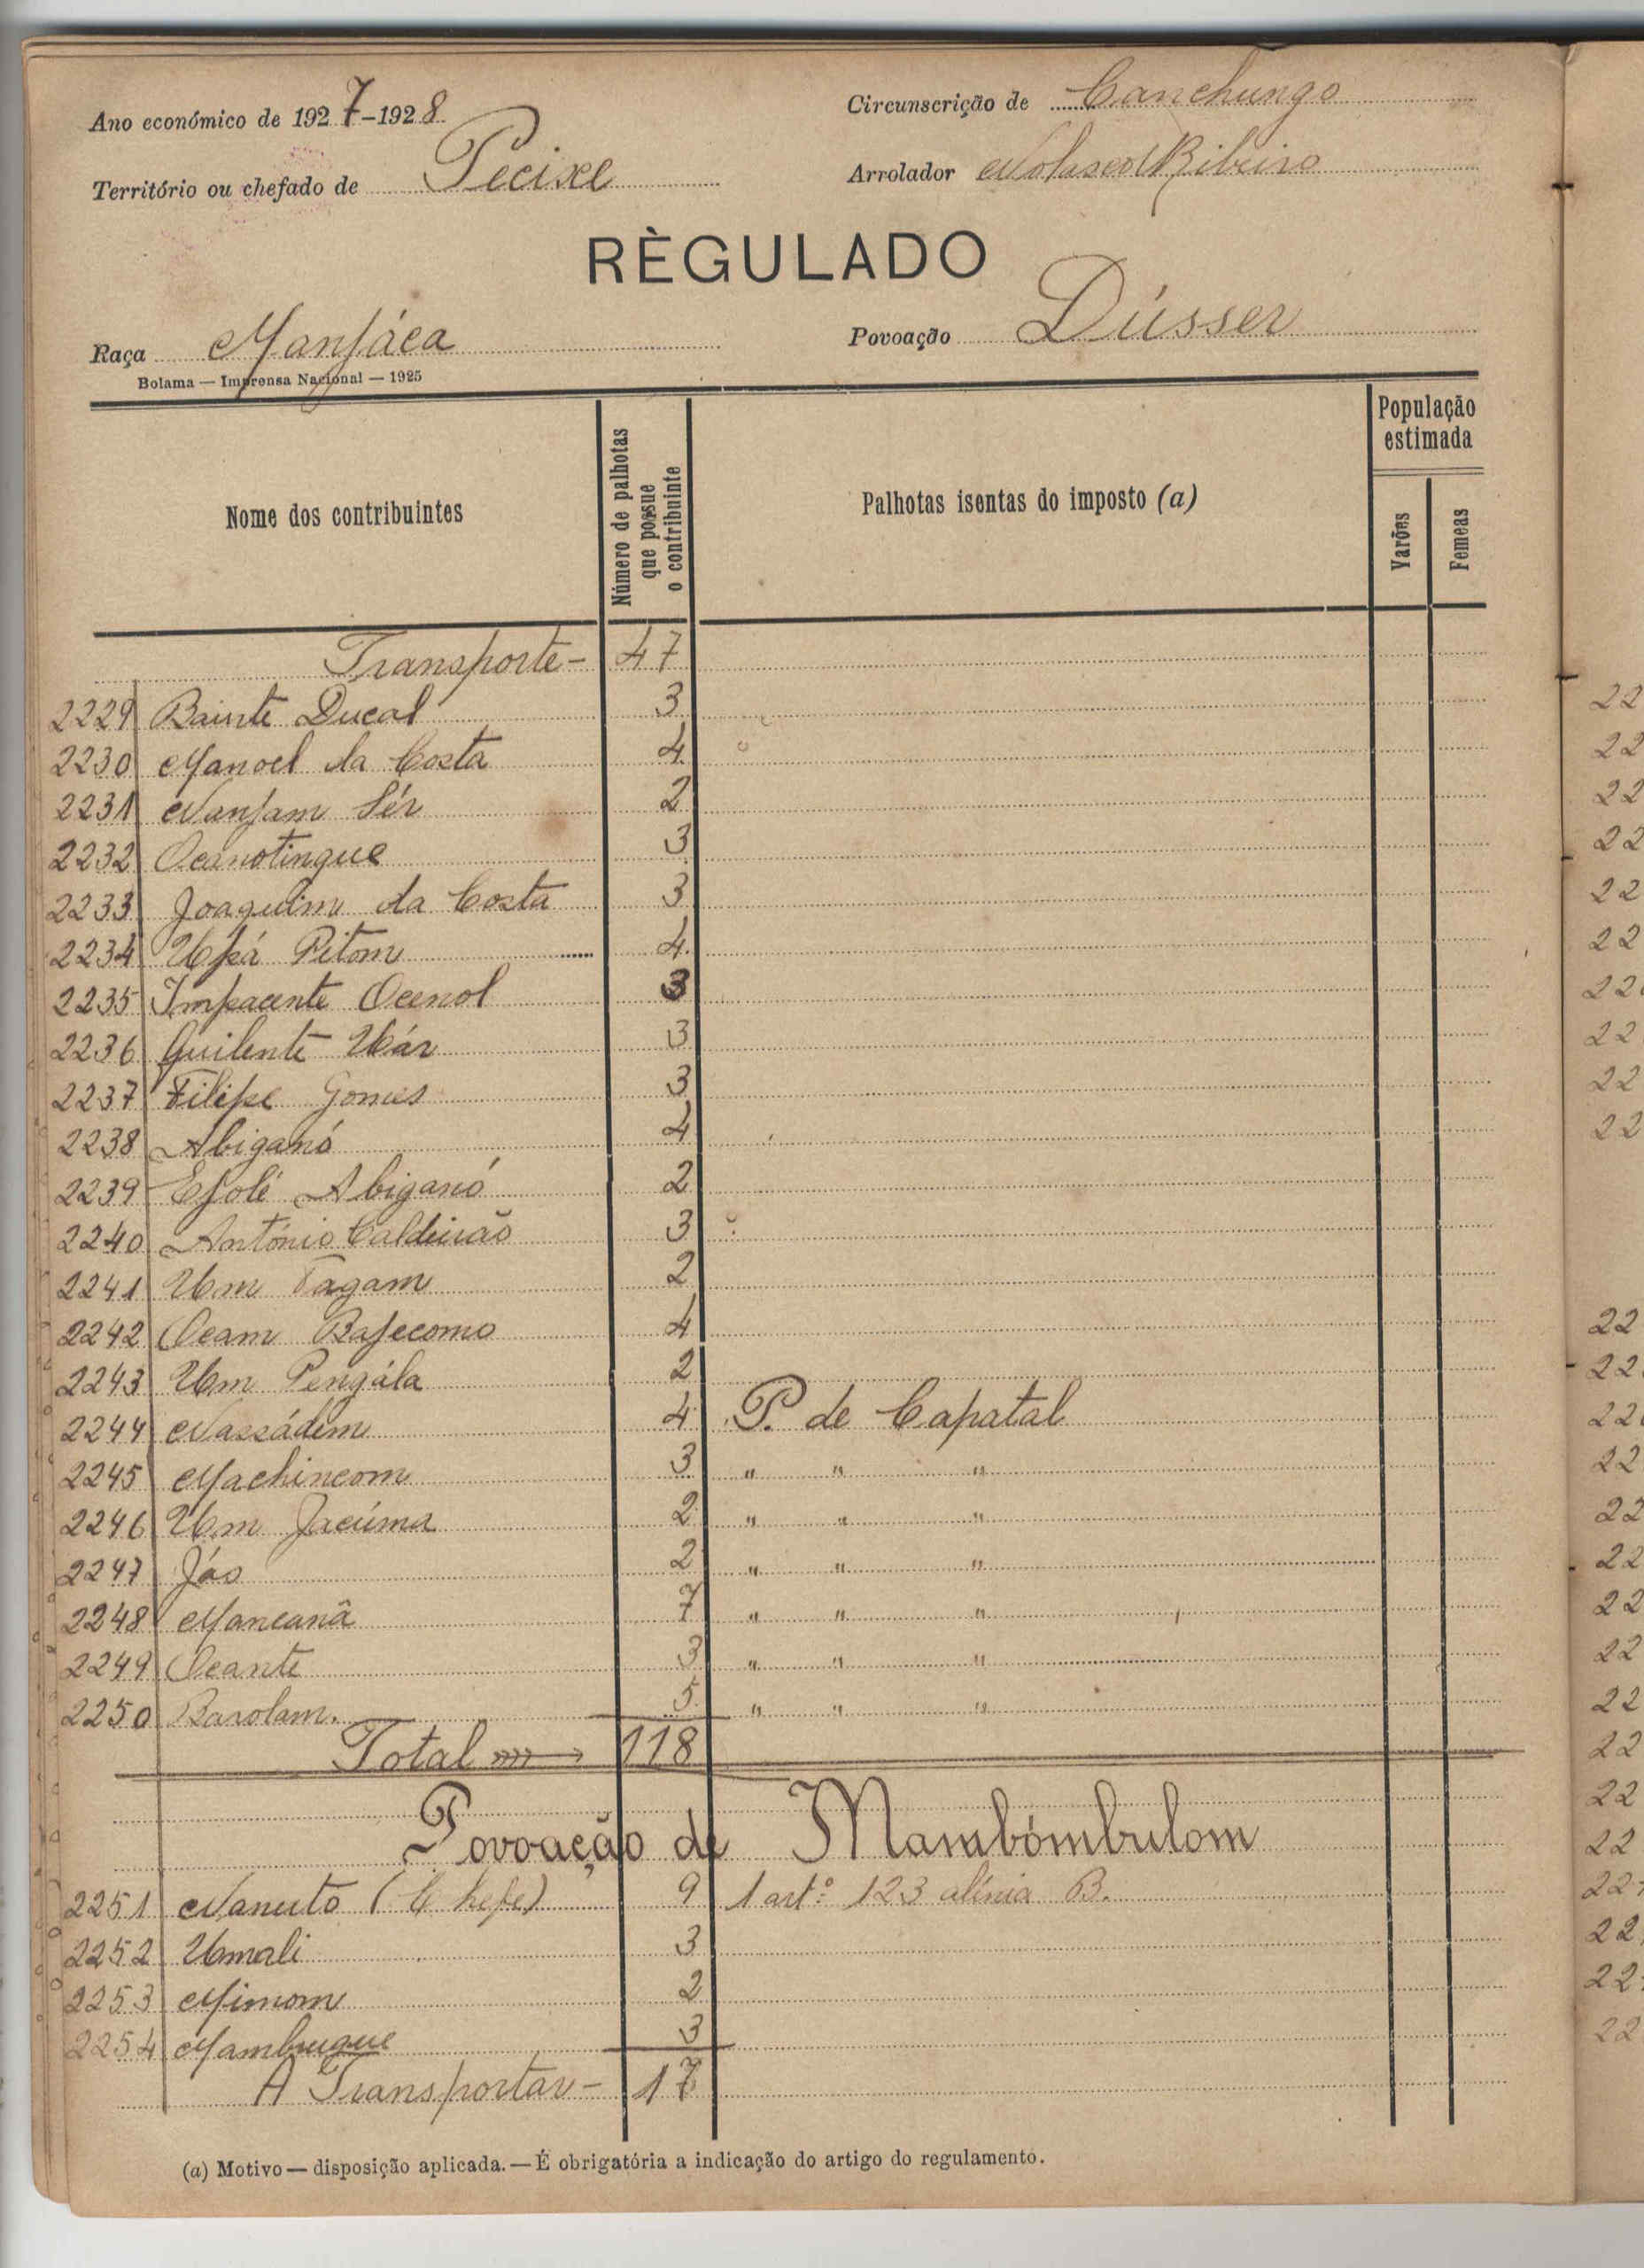 Ano económico de 1927-1928
Circunscrição de Canchungo
Território ou chefado de Pecixe
Arrolador Nolasco Ribeiro
RÈGULADO
Raça Manjáca
Povoação Dússer
Bolama — Imprensa Nacional — 1925
Nome dos contribuintes
Número de palhotas que possue o contribuinte
Palhotas isentas do imposto (a)
População estimada
Varões
Femeas
Transporte - 47
2229 Bainte Ducal 3
2230 Manoel da Costa 4
2231 Nanjam Sér 2
2232 Ocanotingue 3
2233 Joaquim da Costa 3
2234 Upá Pitom 4
2235 Impacente Ocenol 3
2236 Quilente Uár 3
2237 Filipe Gomes 3
2238 Abiganó 4
2239 Ejolé Abiganó 2
2240 António Caldeirão 3
2241 Um Tagam 2
2242 Ocam Bajecomo 4
2243 Um Pengála 2
2244 Nassádem 4 P. de Capatal
2245 Machincom 3 " " "
2246 Um Jacúma 2 " " "
2247 Jás 2 " " "
2248 Mancanã 7 " " "
2249 Ocante 3 " " "
2250 Barolam. 5 " " "
Total 118
Povoação de Mambómbulom
2251 Nanuto (Chefe) 9 1 artº 123 alínia B.
2252 Umali 3
2253 Mimom 2
2254 Mambugue 3
A Transportar - 17
(a) Motivo — disposição aplicada. — É obrigatória a indicação do artigo do regulamento.